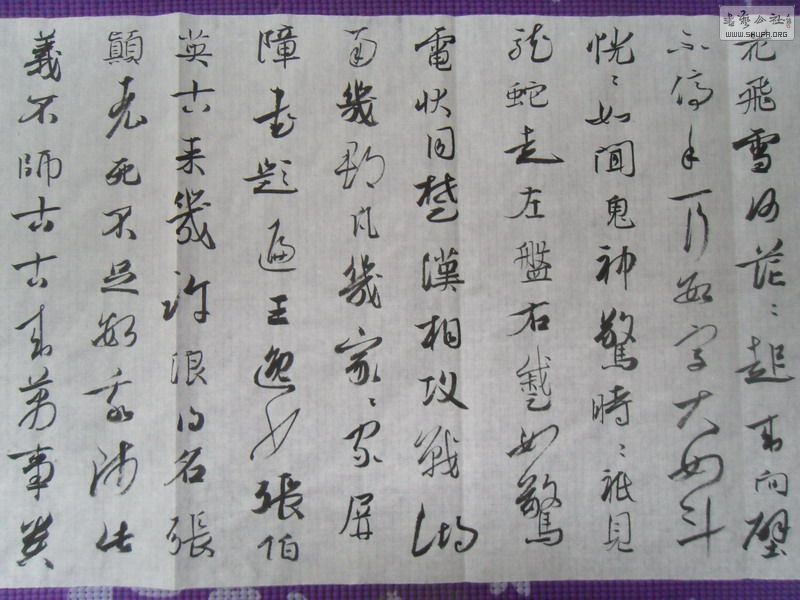 書藝公社
WWW.SHUFA.ORG
花飛雪何茫〻起来向壁
不停手一行数字大如斗
恍〻如聞鬼神驚時〻祗見
龙蛇走左盤右蹙如驚
電状同楚漢相攻戰湖
南幾郡凡幾家〻家屏
障書題遍王逸少張伯
英古来幾許浪得名張
顛老死不足数我師此
義不師古古来萬事貴